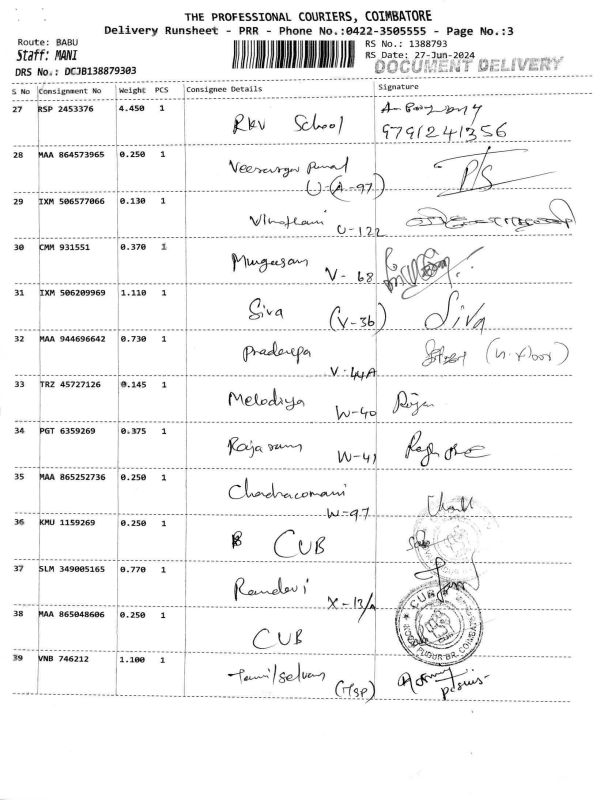 THE PROFESSIONAL COURIERS, COIMBATORE
Delivery Runsheet - PRR - Phone No.:0422-3505555 - Page No.:3
Route: BABU
RS No.: 1388793
Staff: MANI
RS Date: 27-Jun-2024
DOCUMENT DELIVERY
DRS No.: DCJB138879303
S No Consignment No Weight PCS Consignee Details Signature
27 RSP 2453376 4.450 1 RKV School
9791241356
28 MAA 864573965 0.250 1
29 IXM 506577066 0.130 1
U-122
30 CMM 931551 0.370 1 Murugasan V-68
31 IXM 506209969 1.110 1 Siva (V-36) Siva
32 MAA 944696642 0.730 1 Pradeepa V-44A
33 TRZ 45727126 0.145 1 Melodiya W-40
34 PGT 6359269 0.375 1 W-41
35 MAA 865252736 0.250 1 W-97
36 KMU 1159269 0.250 1 CUB
37 SLM 349005165 0.770 1 Ramdevi X-13/A
38 MAA 865048606 0.250 1 CUB
39 VNB 746212 1.100 1 Tamilselvan